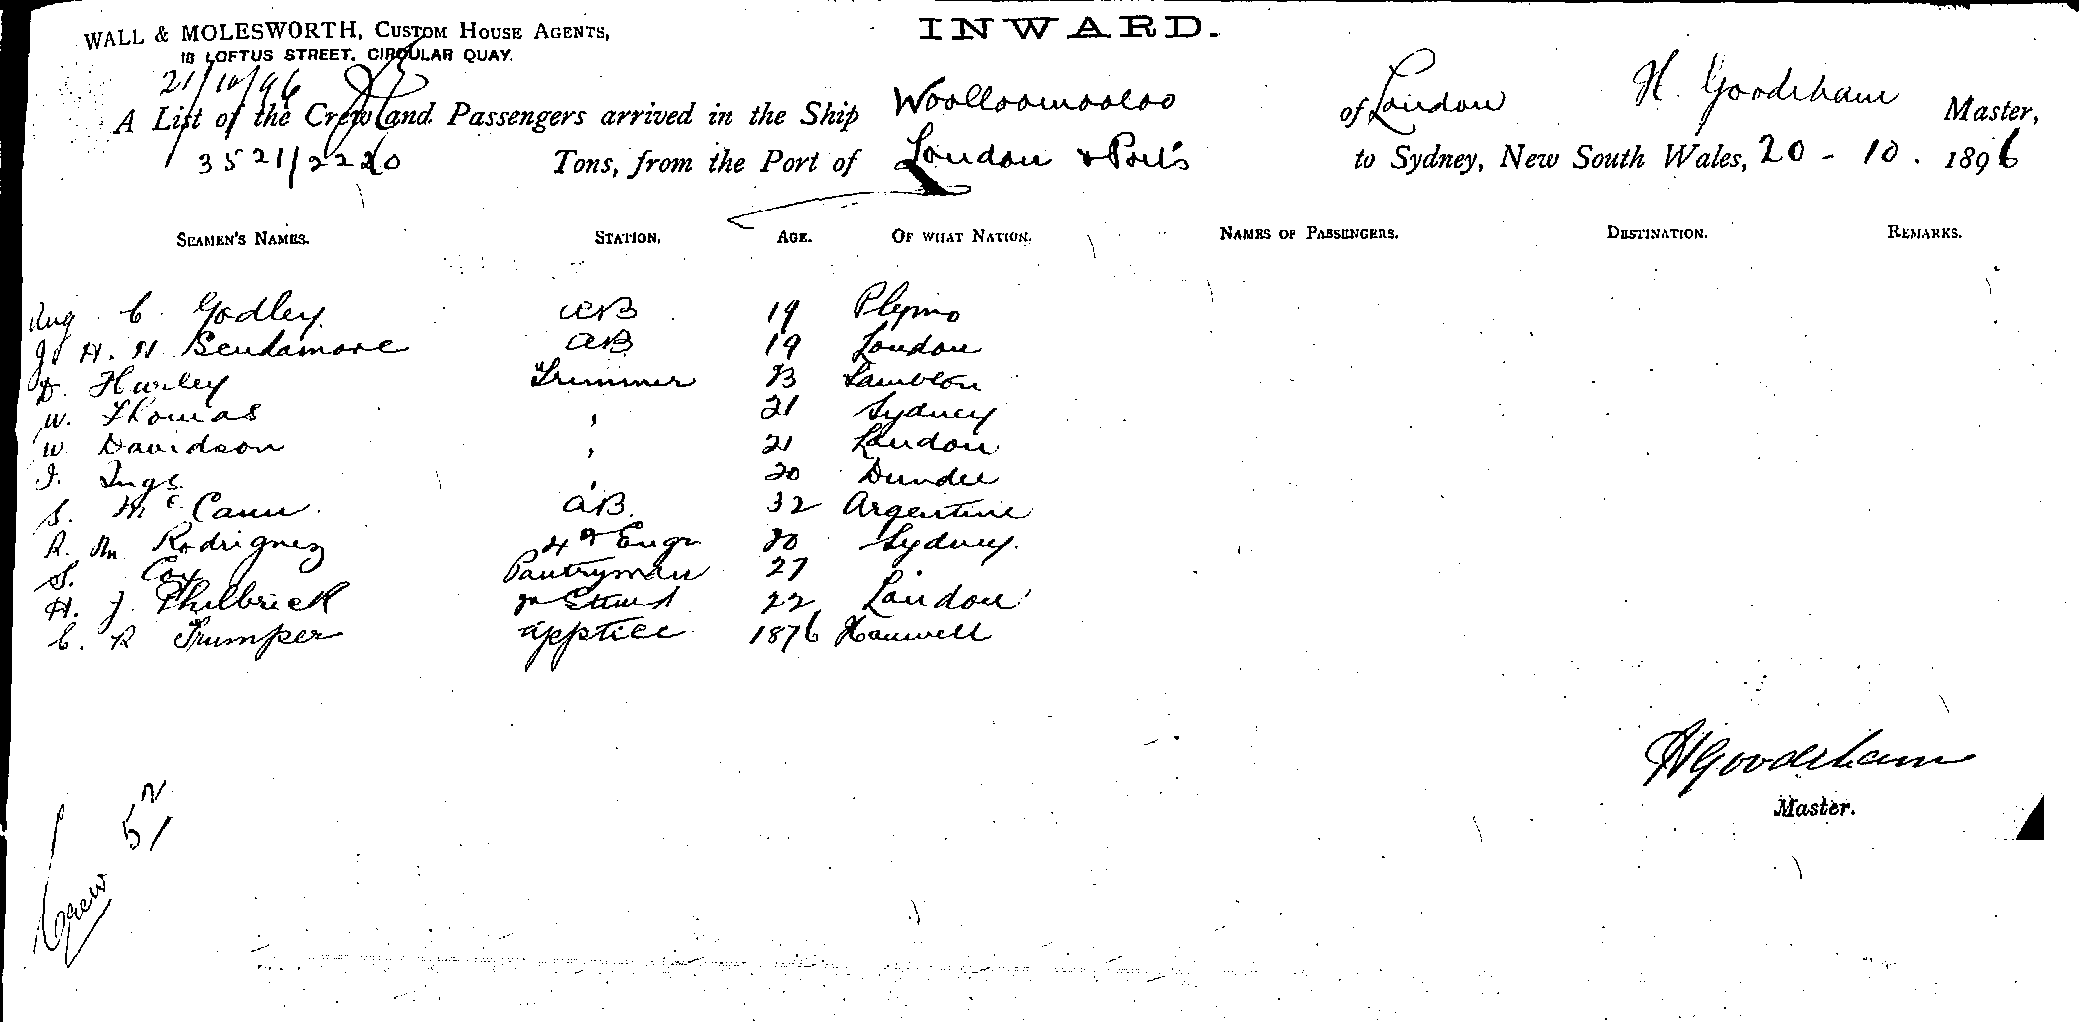 INWARD.
WALL & MOLESWORTH, CUSTOM HOUSE AGENTS,
18 LOFTUS STREET, CIRCULAR QUAY.
21/10/96
A List of the Crew and Passengers arrived in the Ship Woolloomooloo of London H. Goodeham Master,
3521/2220 Tons, from the Port of London & Ports to Sydney, New South Wales, 20 - 10 . 1896
SEAMEN'S NAMES. STATION. AGE. OF WHAT NATION. NAMES OF PASSENGERS. DESTINATION. REMARKS.
Aug C. Godley AB 19 Plymo
H. Scudamore AB 19 London
D. Hurley Trimmer Lambton
W. Thomas " 21 Sydney
W Davidson " 21 London
J. Ings " 20 Dundee
S. McCann AB. 32 Argentine
R. Rodriguez 4th Engr 30 Sydney.
S. Cox Pantryman 27
H. J. Philbrick Steward 22 London
C. R Trumper apptice 1876 Hanwell
H Goodeham
Master.
Crew 52